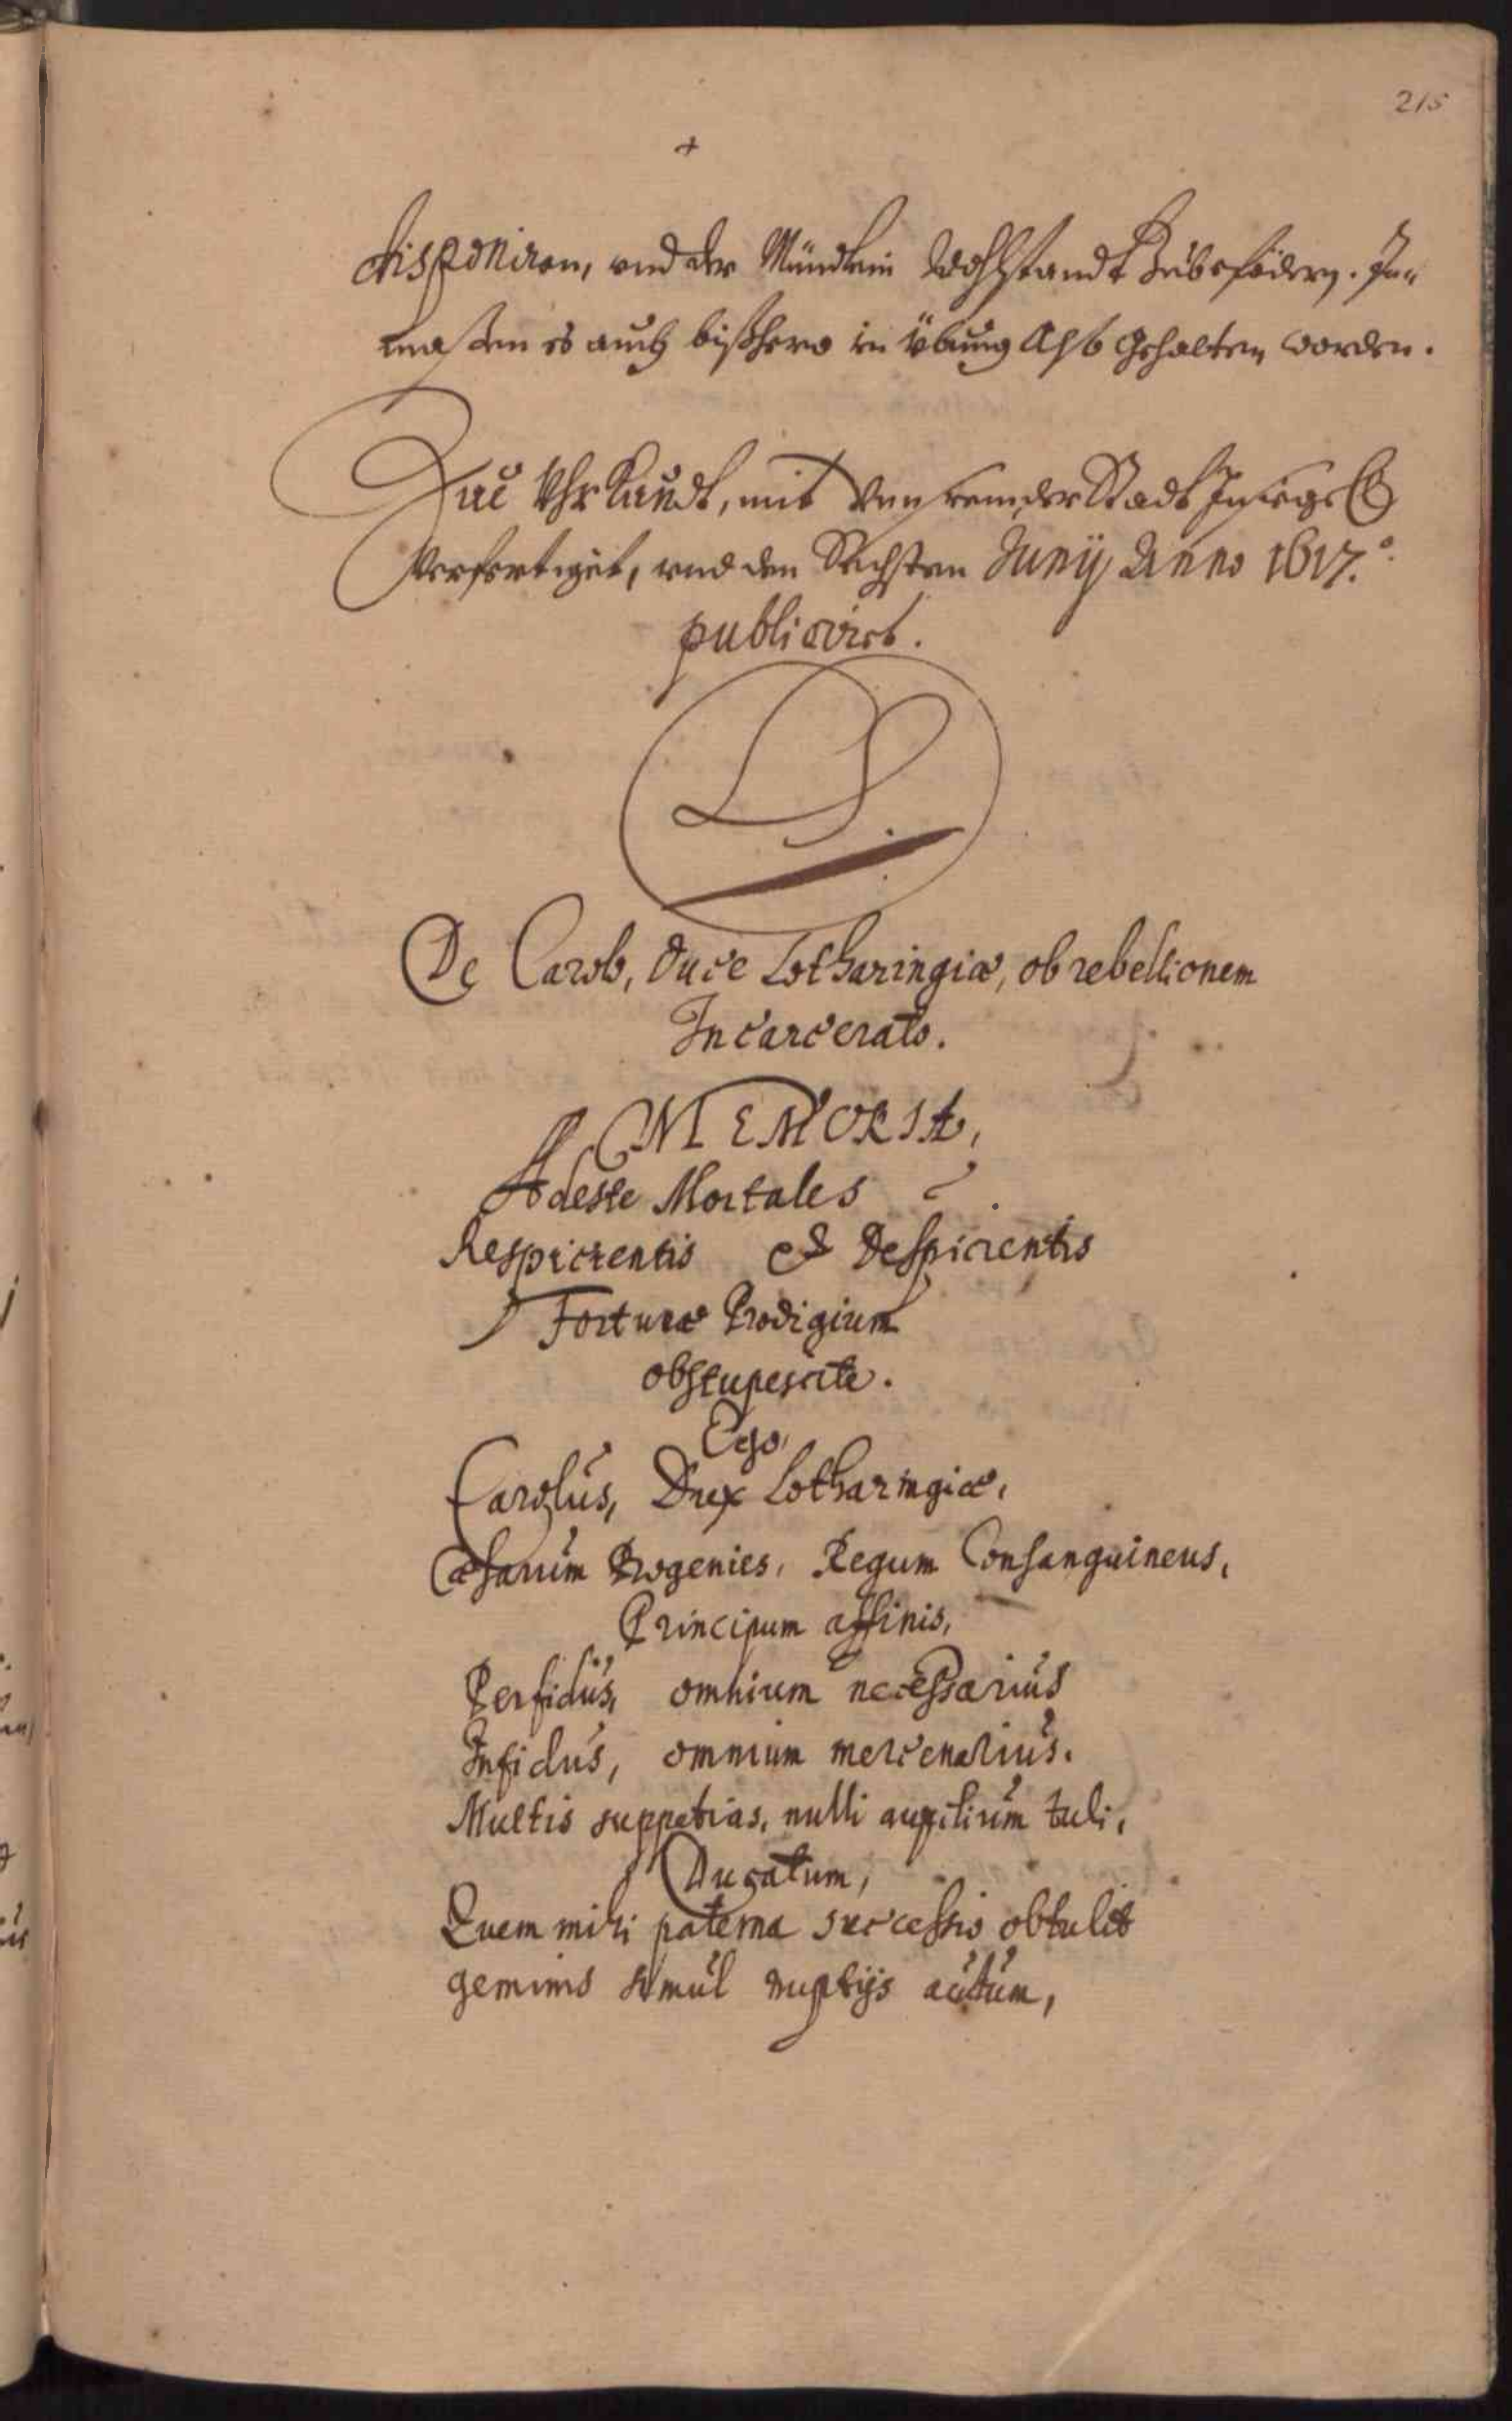 215
+
disponiren, und der Mündlein Wohlstandt Zubefödern. In-
maßen es auch bißhero in übung Also Gehalten worden.
Zue Uhrkundt, mit Unserem der Stadt Insiegel
Verfertiget, und den Sechsten Junij Anno 1617.º
publicirt.
LS.
De Carolo, Duce Lotharingiæ, ob rebellionem
Incarcerato.
MEMORIÆ,
Adeste Mortales
Respicientis et Despicientis
Fortunæ Prodigium
obstupescite.
Ego,
Carolus, Dux Lotharingiæ,
Cæsarum Progenies, Regum Consanguineus,
Principum affinis,
Perfidus, omnium necessarius
Infidus, omnium mercenarius.
Multis suppetias, nulli auxilium tuli,
Ducatum,
Quem mihi paterna successio obtulit
geminis simul nuptijs auctum,